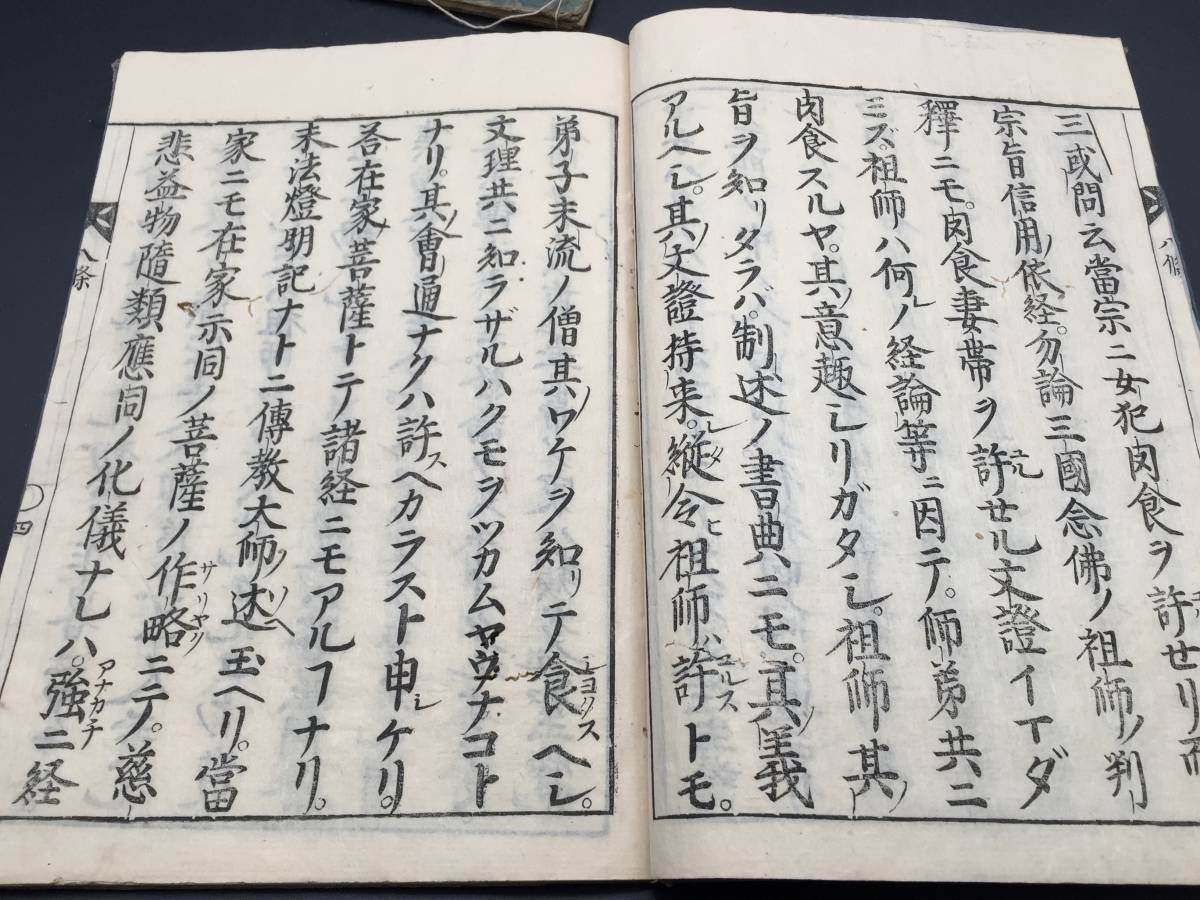 三或問云當宗ニ女犯肉食ヲ許セリ而
宗旨信用ノ依経。勿論三國念佛ノ祖師ノ判
釋ニモ。肉食妻帯ヲ許セル文證イマダ
ミズ。祖師ハ何ノ経論等ニ因テ。師弟共ニ
肉食スルヤ。其ノ意趣シリガタシ。祖師其ノ
旨ヲ知リタラバ。制述ノ書典ニモ。其ノ
アルヘシ。其ノ文證持来。縦令ヒ祖師ハ許ルストモ。
弟子末流ノ僧其ノワケヲ知リテ食スヘシ。
文理共ニ知ラザルハクモヲツカムヤウナコト
ナリ。其ノ會通ナクハ許スヘカラスト申シケリ
答在家ノ菩薩トテ諸経ニモアルヿナリ。
末法燈明記ナトニ傳教大師ノ述ヘ玉ヘリ。當
家ニモ在家示同ノ菩薩ノ作略ニテ。慈
悲益物隨類應同ノ化儀ナレハ。強ニ経
八條
四